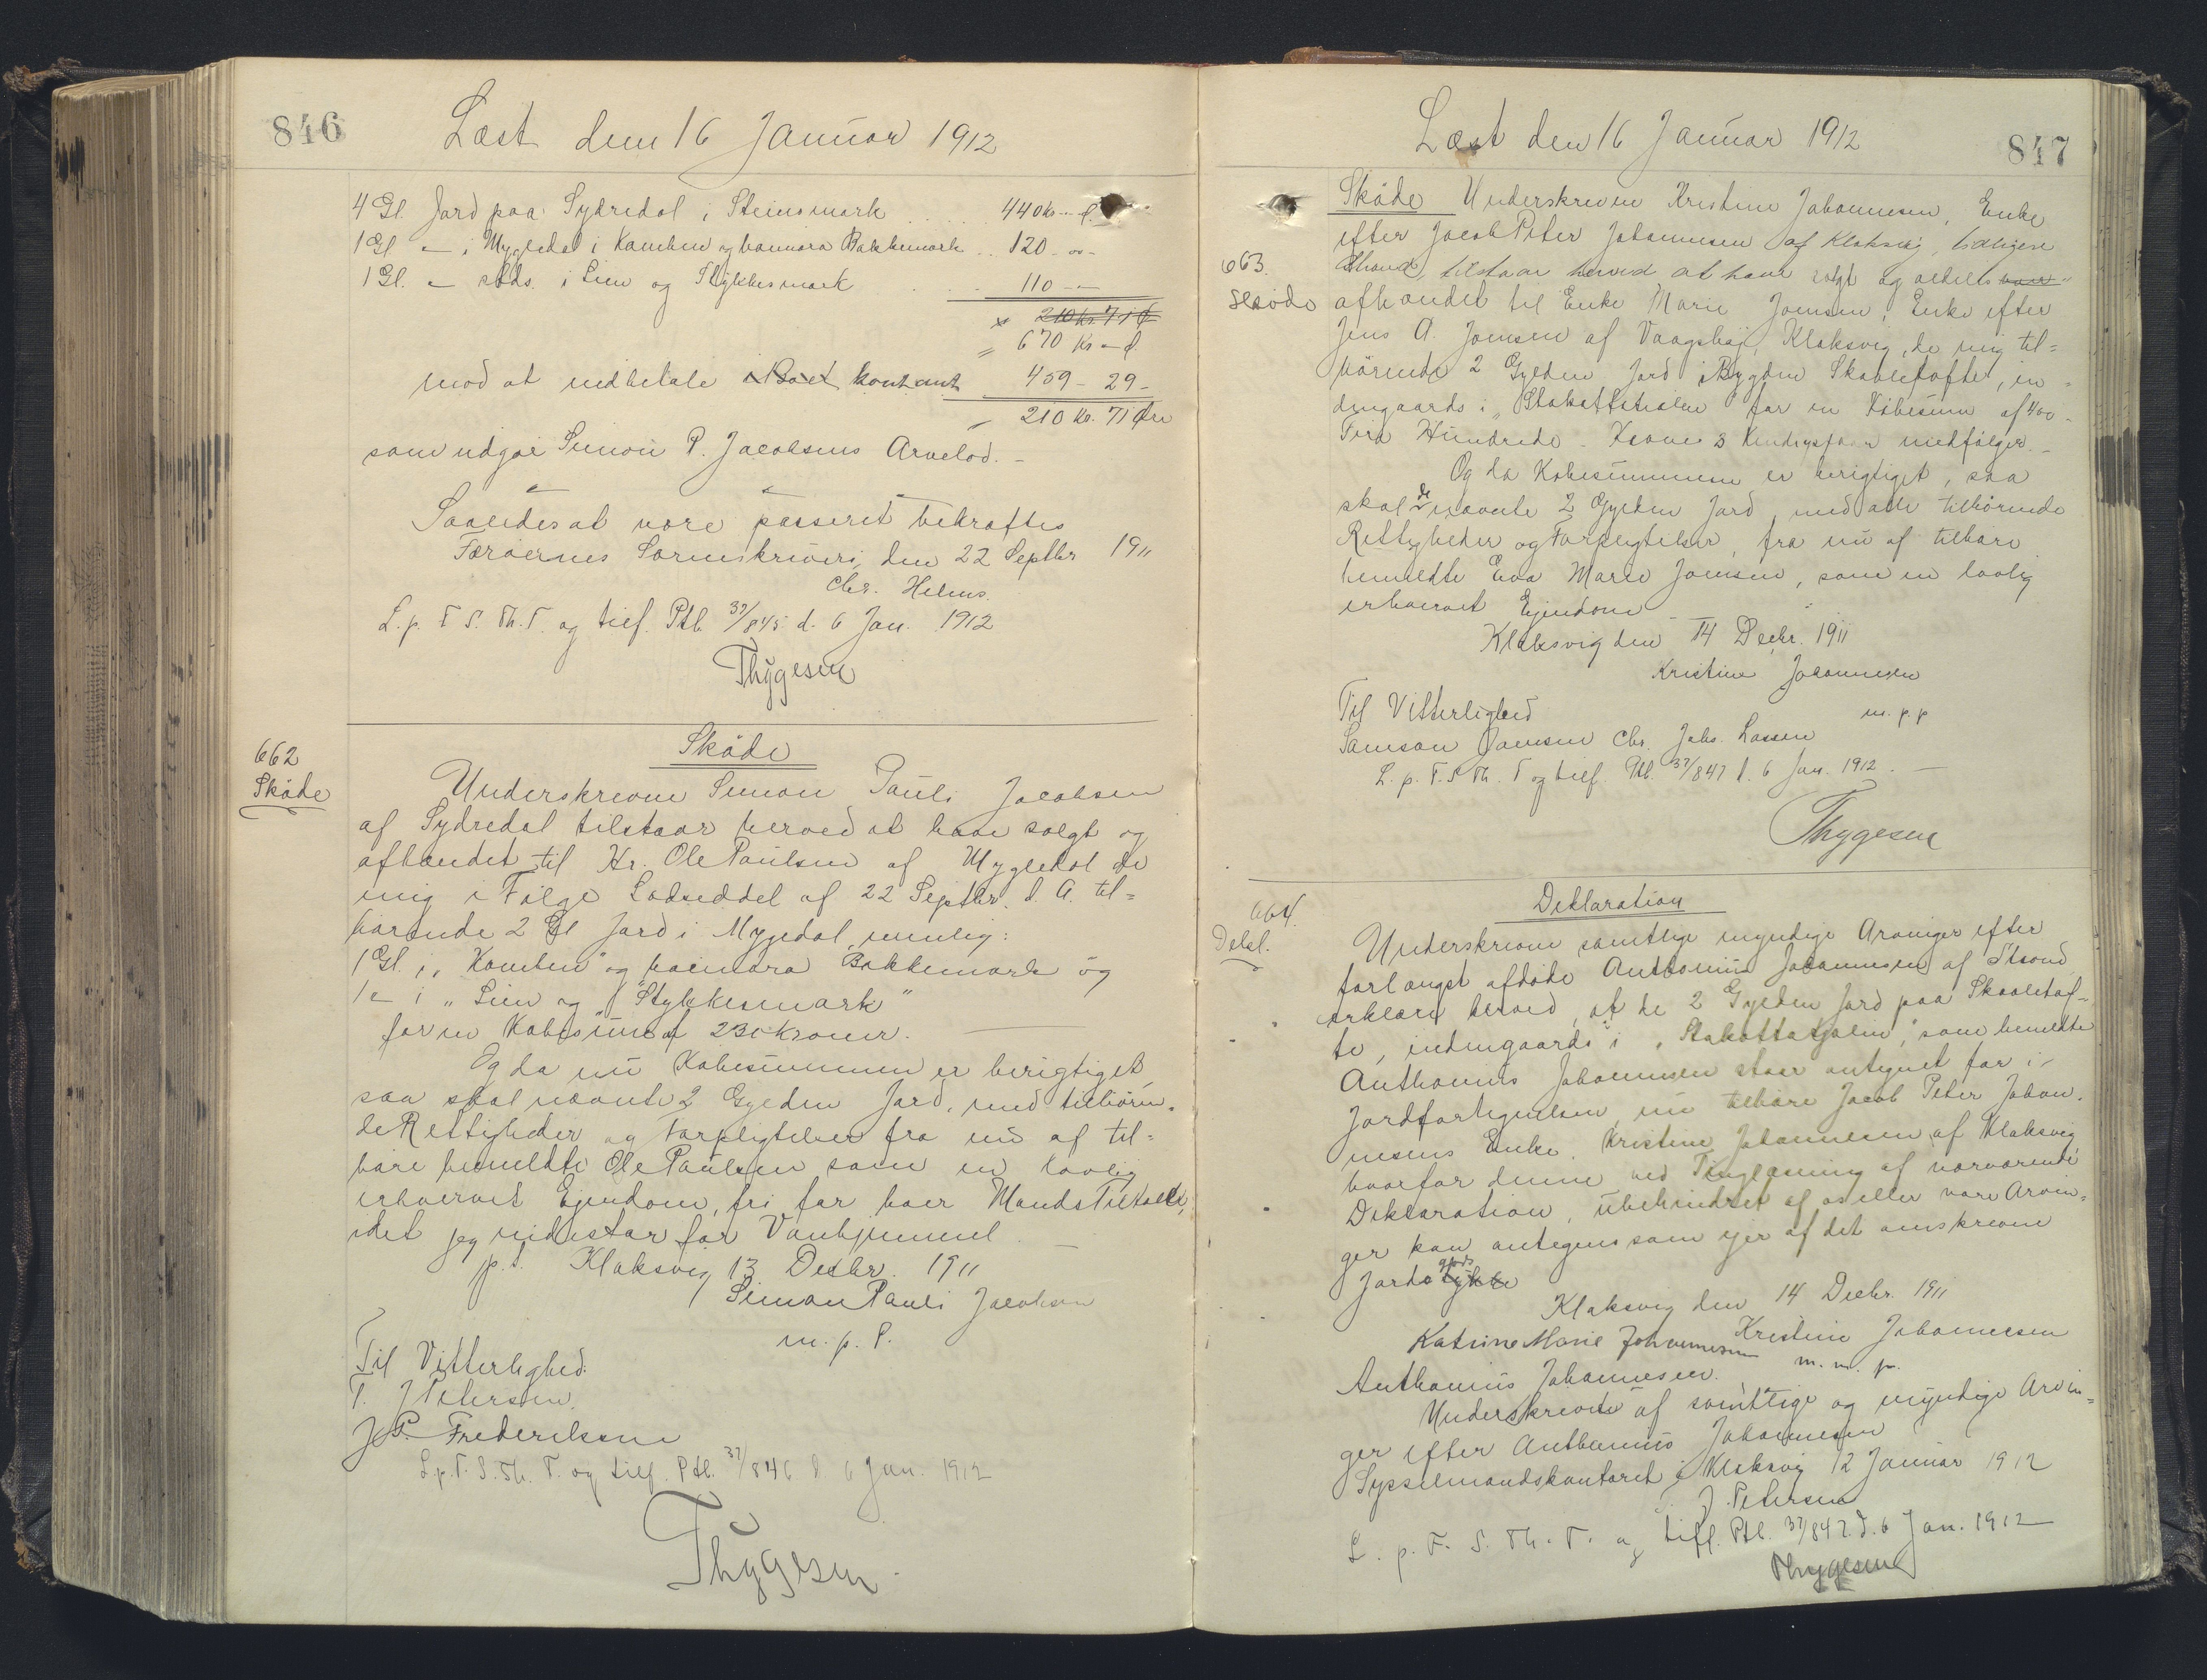 846
Læst den 16 Januar 1912
4 Gl. Jord paa Sydredal i Steinsmark ..... 440 Kr - Ø
1 Gl — i Mygledal i Kamben og hannara Bakkemark .. 120 - " -
1 Gl. — sdds. i Lien og Stykkesmark ..... 110 - —
210 Kr. 71 Ø
= 670 Kr - Ø
mod at indbetale i Boet kontant 459 - 29 -
= 210 Kr. 71 Øre
som udgør Simon P. Jacobsens Arvelod. -
Saaledes at være passeret bekræftes
Færøernes Sorenskriveri, den 22 Septbr 1911
Chr. Helms.
L. p. F. S. Th. T. og tilf. Ptb. 37/845 d. 6 Jan. 1912
Thygesen
662
Skøde
Skøde
Underskrevne Simon Pauli Jacobsen
af Sydredal tilstaar herved at have solgt og
afhændet til Hr. Ole Paulsen af Mygledal de
mig i Følge Lodseddel af 22 Septbr. d. A. til=
hørende 2 Gl Jord i Mygedal, nemlig:
1 Gl. i "Kamben" og hannara Bakkemark og
1 — i "Lien og "Stykkesmark"
for en Købesum af 230 Kroner.
Og da nu Købesummen er berigtiget
saa skal nævnte 2 Gylden Jord, med tilhøren=
de Rettigheder og Forpligtelser fra nu af til=
høre bemeldte Ole Paulsen som en lovlig
erhvervet Ejendom, fri for hver Mands Tiltale,
idet jeg indestar for Vanhjemmel
p. t. Klaksvig 13 Decbr. 1911
Simon Pauli Jacobsen
m. p. P.
Til Vitterlighed:
T. J Petersen.
J P. Frederiksen
L. p. F. S. Th. T. og tilf. Ptb. 37/846 d. 6 Jan. 1912
Thygesen
Læst den 16 Januar 1912
847
663.
Skøde
Skøde Underskreven Kristine Johannesen, Enke
efter Jacob Peter Johannesen af Klaksvig, tidligere
Strond, tilstaar herved at have solgt og aldeles
afhændet til Enke Marie Joensen, Enke efter
Jens A. Joensen af Vaagshøj, Klaksvig, de mig til=
hørende 2 Gylden Jord i Bygden Skaaletofte, in=
dengaards i "Stakattatrøen for en Købesum af 400 -
Fire Hundrede - Kroner 3 medfølger. -
Og da Købesummen er berigtiget, saa
skal de nævnte 2 Gylden Jord med alle tilhørende
Rettigheder og Forpligtelser, fra nu af tilhøre
bemeldte Eva Marie Joensen, som en lovlig
erhvervet Ejendom
Klaksvig den 14 Decbr. 1911
Kristine Johannesen
m. p. p
Til Vitterlighed
Samson Joensen Chr. Johs. Lassen
L. p. F. S. Th. T og tilf. Ptb. 37/847 d. 6 Jan. 1912. —
Thygesen
664.
Dekl.
Deklaration
Underskrevne samtlige myndige Arvinger efter
forlængst afdøde Anthonius Johannesen af Strond
erklære herved, at de 2 Gylden Jord paa Skaaletof=
te, indengaards i "Stakattatjølen", som bemeldte
Anthonius Johannesen staar antegnet for i
Jordfortegnelsen nu tilhøre Jacob Peter Johan=
nesens Enke, Kristine Johannesen af Klaksvig
hvorfor denne ved Tinglæsning af nærværende
Deklaration, ubehindret af os eller vore Arvin=
ger kan antegnes som ejer af det omskrevne
Jordstykke gods
Klaksvig den 14 Decbr. 1911
Katrine Marie Johannesen Kristine Johannesen
Anthonius Johannesen. m. m. p.
Underskrevet af samtlige og myndige Arvin=
ger efter Anthonius Johannesen
Sysselmandskontoret i Klaksvig 12 Januar 1912
J. Petersen
L. p. F. S. Th. T. og tilf. Ptb. 37/847 d. 6 Jan. 1912
Thygesen